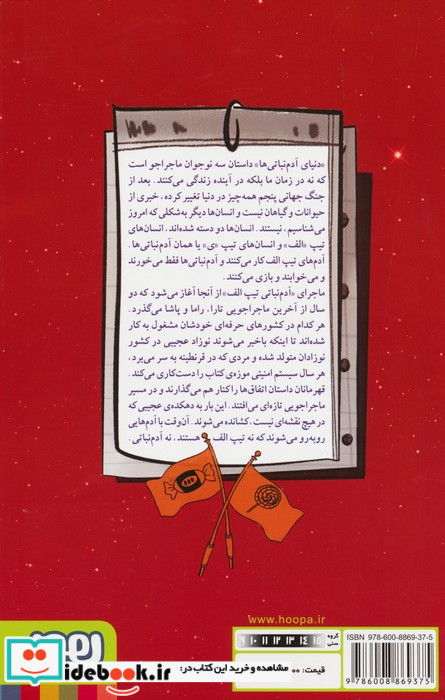 «دنیای آدم‌نباتی‌ها» داستان سه نوجوان ماجراجو است
که نه در زمان ما بلکه در آینده زندگی می‌کنند. بعد از
جنگ جهانی پنجم همه‌چیز در دنیا تغییر کرده، خبری از
حیوانات و گیاهان نیست و انسان‌ها دیگر به‌شکلی که امروز
می‌شناسیم، نیستند. انسان‌ها دو دسته شده‌اند، انسان‌های
تیپ «الف» و انسان‌های تیپ «ی» یا همان آدم‌نباتی‌ها.
آدم‌های تیپ الف کار می‌کنند و آدم‌نباتی‌ها فقط می‌خورند
و می‌خوابند و بازی می‌کنند.
ماجرای «آدم‌نباتی تیپ الف» از آنجا آغاز می‌شود که دو
سال از آخرین ماجراجویی تارا، راما و پاشا می‌گذرد.
هر کدام در کشورهای حرفه‌ای خودشان مشغول به کار
شده‌اند تا اینکه باخبر می‌شوند نوزاد عجیبی در کشور
نوزادان متولد شده و مردی که در قرنطینه به سر می‌برد،
هر سال سیستم امنیتی موزه‌ی کتاب را دست‌کاری می‌کند.
قهرمانان داستان اتفاق‌ها را کنار هم می‌گذارند و در مسیر
ماجراجویی تازه‌ای می‌افتند. این بار به دهکده‌ی عجیبی که
در هیچ نقشه‌ای نیست، کشانده می‌شوند. آن‌وقت با آدم‌هایی
روبه‌رو می‌شوند که نه تیپ الف هستند، نه آدم‌نباتی.
www.hoopa.ir
گروه سنی
۹ ۱۰ ۱۱ ۱۲ ۱۳ ۱۴ ۱۵
ISBN 978-600-8869-37-5
9 786008 869375
قیمت:
مشاهده و خرید این کتاب در:
idebook.ir